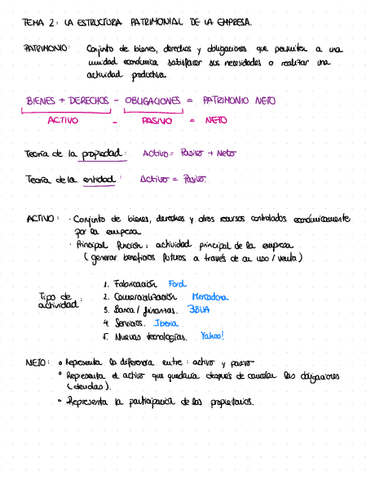 TEMA 2: LA ESTRUCTURA PATRIMONIAL DE LA EMPRESA.
PATRIMONIO: Conjunto de bienes, derechos y obligaciones que permiten a una
unidad económica satisfacer sus necesidades o realizar una
actividad productiva
BIENES + DERECHOS - OBLIGACIONES = PATRIMONIO NETO
ACTIVO - PASIVO = NETO
Teoría de la propiedad: Activo = Pasivo + Neto
Teoría de la entidad: Activo = Pasivo.
ACTIVO: · Conjunto de bienes, derechos y otros recursos controlados económicamente
por la empresa
· Principal función: actividad principal de la empresa
(generar beneficios futuros a través de su uso / venta)
Tipo de
actividad:
1. Fabricación Ford
2. Comercialización Mercadona
3. Banca / finanzas. BBVA
4. Servicios. Iberia
5. Nuevas tecnologías. Yahoo!
NETO: · Representa la diferencia entre: activo y pasivo
· Representa el activo que quedaría después de cancelar las obligaciones
(deudas).
· Representa la participación de los propietarios.